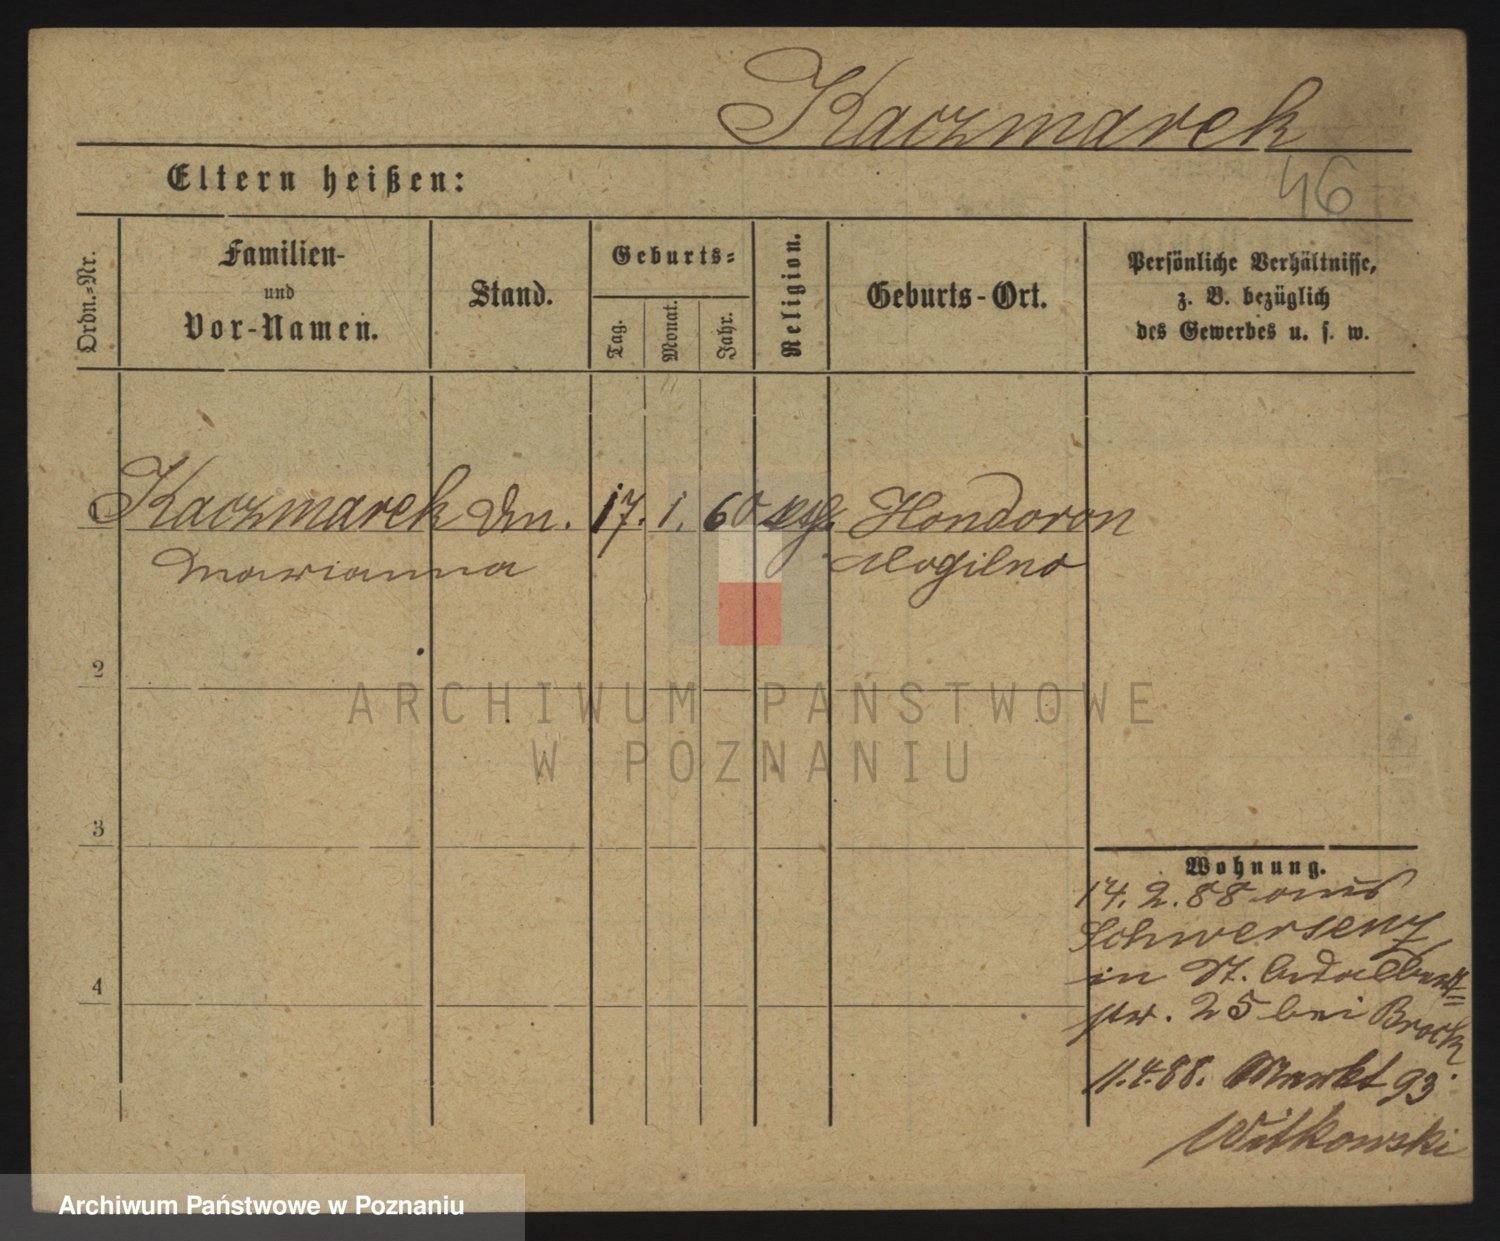 Kaczmarek
Eltern heißen:
46
Ordn.-Nr.
Familien-
und
Vor-Namen.
Stand.
Geburts-
Tag.
Monat.
Jahr.
Religion.
Geburts-Ort.
Persönliche Verhältnisse,
z. B. bezüglich
des Gewerbes u. s. w.
1 Kaczmarek 17. 1. 60 Hondoron
Marianna Mogilno
2
3
4
Wohnung.
14. 2. 88 aus
Schwersenz
in St. Adalbert=
str. 25 bei Brock
11.4.88. Markt 93.
Witkowski
ARCHIWUM PAŃSTWOWE
W POZNANIU
Archiwum Państwowe w Poznaniu